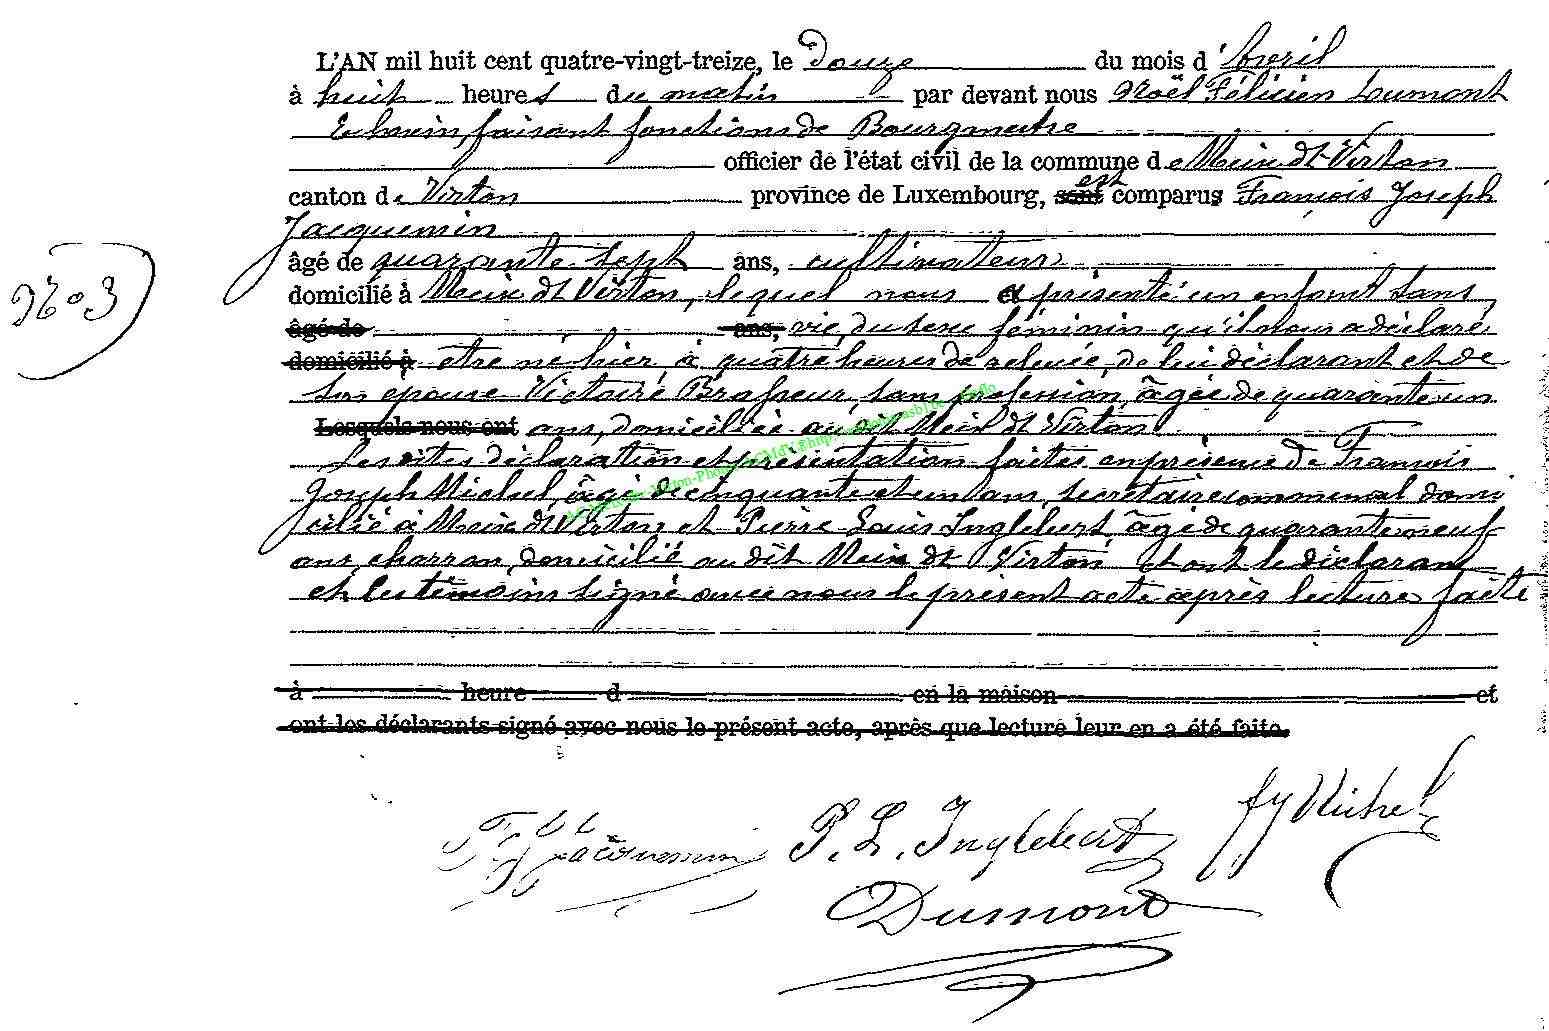 L'AN mil huit cent quatre-vingt-treize, le Douze du mois d'Avril
à huit heures du matin par devant nous Noël Félicien Dumont
Echevin, faisant fonctions de Bourgmestre
officier de l'état civil de la commune de Meix dt Virton
canton de Virton province de Luxembourg, sont est comparus François Joseph
Jacquemin
âgé de quarante sept ans, cultivateur
N° 3
domicilié à Meix dt Virton, lequel nous a présenté un enfant sans
âgé de ans, vie, du sexe féminin qu'il nous a déclaré
domicilié à etre né hier, à quatre heures de relevée, de lui déclarant et de
son épouse Victoire Brasseur, sans profession, âgée de quarante un
Lesquels nous ont ans, domiciliée au dit Meix dt Virton
Les dites déclaration et présentation faites en présence de François
Joseph Michel, âgé de cinquante et un ans, secrétaire communal domi
cilié à Meix dt Virton et Pierre Louis Inglebert, âgé de quarante neuf
ans, charron, domicilié au dit Meix dt Virton Et ont le déclarant
et les témoins signé avec nous le présent acte après lecture faite
à heure d en la maison et
ont les déclarants signé avec nous le présent acte, après que lecture leur en a été faite.
fj Michel
P. L. Inglebert
Jacquemin
Dumont